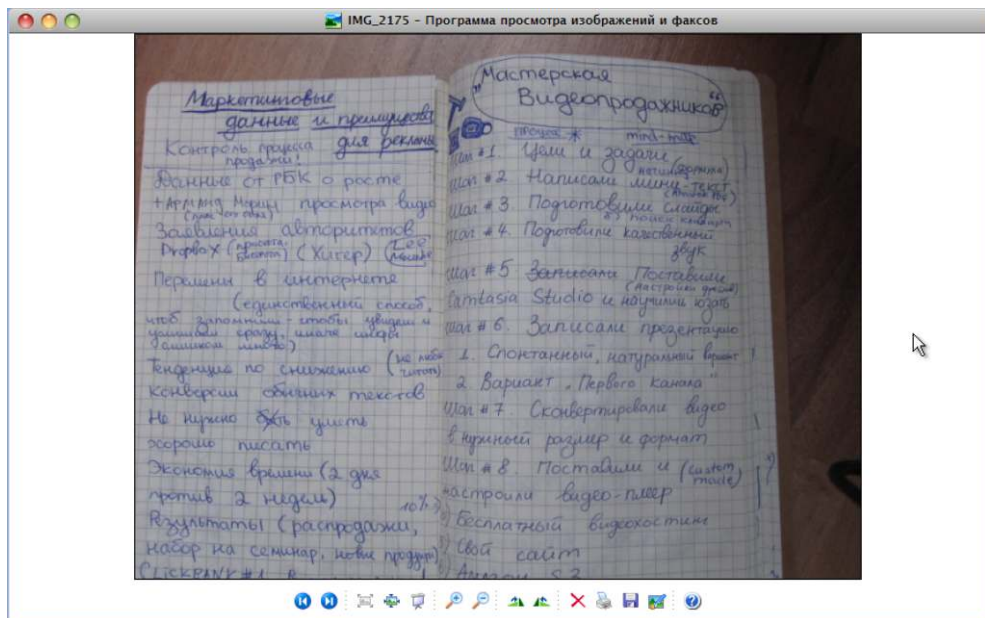 IMG_2175 - Программа просмотра изображений и факсов
Маркетинговые
данные и преимущества
для рекламы
Контроль процесса
продажи!
Данные от РБК о росте
+ Арманд Морин просмотра видео
Заявления авторитетов
Dropbox (простота. (Хикер) (Lee
Перемены в интернете
(единственный способ,
чтоб запомнили - чтобы увидели и
услышали сразу, иначе
слишком много)
Тенденция по снижению (не любят
читать)
Конверсии обычных текстов
Не нужно уметь
хорошо писать
Экономия времени (2 дня
против 2 недель)
10%
Результаты (распродажи,
набор на семинар, новые продукты)
CLICKBANK #1
"Мастерская
Видеопродажников"
Шаг #1. Цели и задачи
Шаг #2. Написали мини-текст
Шаг #3. Подготовили слайды
Шаг #4. Подготовили качественный
звук
Шаг #5 Записали Поставили
(настройки
Camtasia Studio и научили юзать
Шаг #6. Записали презентацию
1. Спонтанный, натуральный вариант
2. Вариант "Первого канала"
Шаг #7. Сконвертировали видео
в нужный размер и формат
Шаг #8. Поставили и (custom
made)
настроили видео-плеер
Бесплатный видеохостинг
Свой сайт
Амазон S3